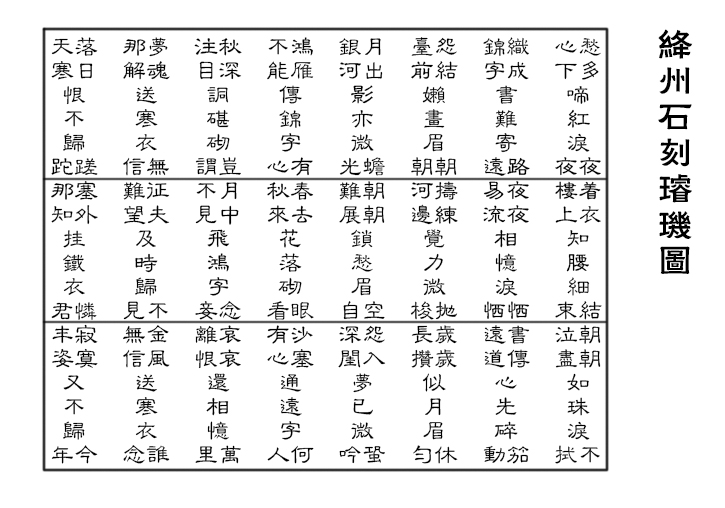 絳州石刻璿璣圖
愁多心下啼紅淚夜夜
織成錦字書難寄路遠
怨結臺前嬾畫眉朝朝
月出銀河影亦微蟾光
鴻雁不能傳錦字有心
秋深注目詞碪砌豈謂
夢魂那解送寒衣無信
落日天寒恨不歸蹉跎
着衣樓上知腰細結束
夜夜易流相憶淚恓恓
擣練河邊覺力微拋梭
朝朝難展鎖愁眉空自
春去秋來花落砌眼看
月中不見飛鴻字念妾
征夫難望及時歸不見
塞外那知挂鐵衣憐君
朝朝泣盡如珠淚不拭
書傳遠道心先碎笳動
歲歲長攢似月眉休勻
怨入深閨夢已微蛩吟
沙塞有心通遠字何人
哀哀離恨還相憶萬里
金風無信送寒衣誰念
寂寞丰姿又不歸今年